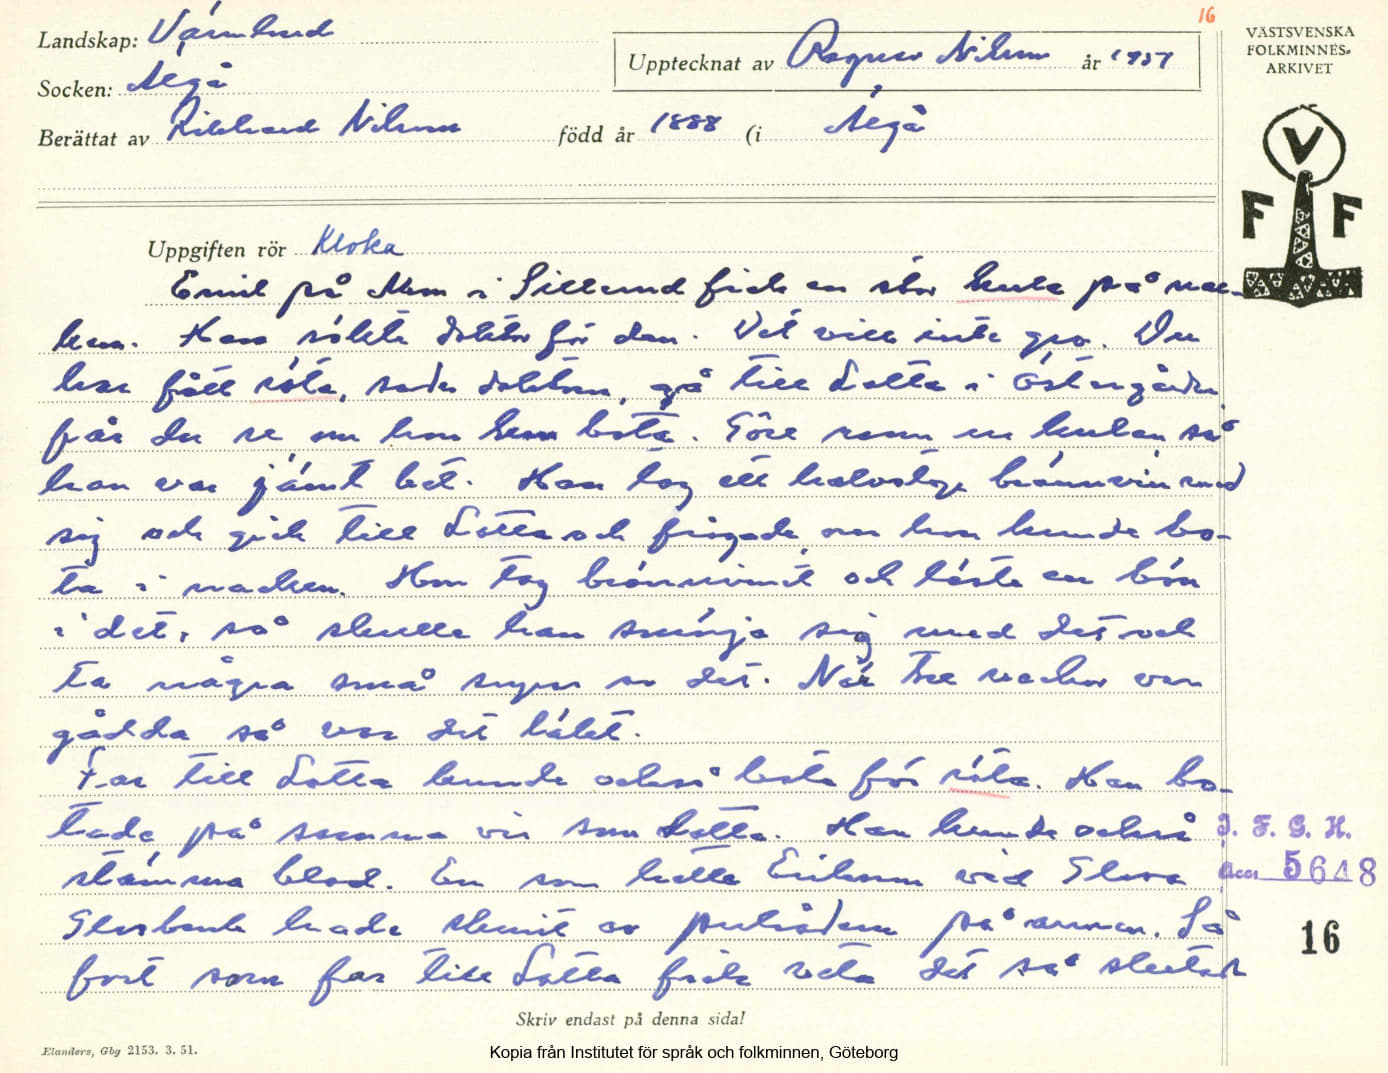 16
Landskap: Värmland
Socken: Älgå
Upptecknat av Ragnar Nilsson år 1957
Berättat av Rikhard Nilsson född år 1888 (i Älgå
VÄSTSVENSKA
FOLKMINNES-
ARKIVET
V
F F
Uppgiften rör Kloka
Emil på Mon i Sillerud fick en stor kula på nac-
ken. Han sökte doktor för den. Det ville inte gro. Du
har fått röta, sade doktorn, gå till Lotta i Östergården
får du se om hon kan bota. Töre rann ur kulan så
han var jämt bet. Han tog ett halvstop brännvin med
sig och gick till Lotta och frågade om hon kunde bo-
ta i nacken. Hon tog brännvinet och läste en bön
i det, så skulle han smörja sig med det och
ta några små supar av det. När tre veckor var
gådda så var det läket.
Far till Lotta kunde också bota för röta. Han bo-
tade på samma vis som Lotta. Han kunde också
stämma blod. En som hette Eriksson vid Glava
Glasbruk hade skurit av pulsådern på armen. Så
fort som far till Lotta fick veta det så slutade
I. F. G. H.
Acc 5648
16
Skriv endast på denna sida!
Elanders, Gbg 2153. 3. 51.
Kopia från Institutet för språk och folkminnen, Göteborg